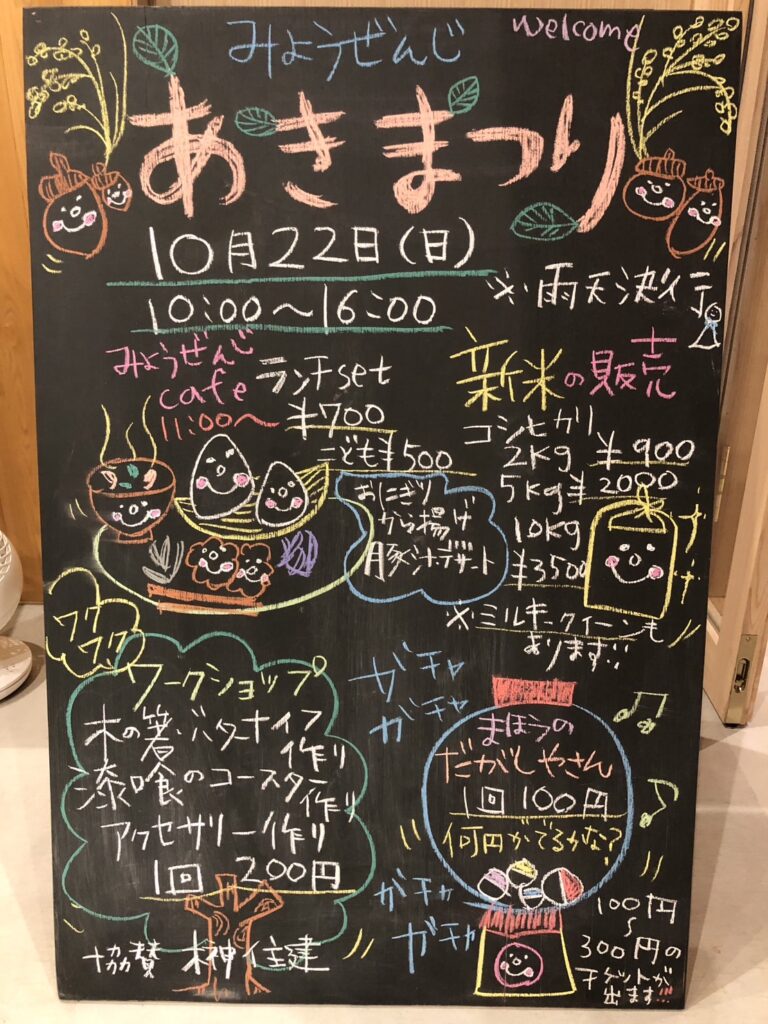 みょうぜんじ
welcome
あきまつり
10月22日(日)
10:00〜16:00
※雨天決行
みょうぜんじ
cafe
11:00〜
ランチset
¥700
こども¥500
おにぎり
から揚げ
豚汁・デザート
新米の販売
コシヒカリ
2kg ¥900
5kg ¥2000
10kg
¥3500
※ミルキークイーンも
あります!!
ワクワク
ワークショップ
木の箸・バターナイフ
作り
漆喰のコースター
作り
アクセサリー作り
1回 200円
協賛 榊住建
ガチャ
ガチャ
まほうの
だがしやさん
1回100円
何円がでるかな?
ガチャ
ガチャ
100円
〜
300円の
チケットが
出ます!!!